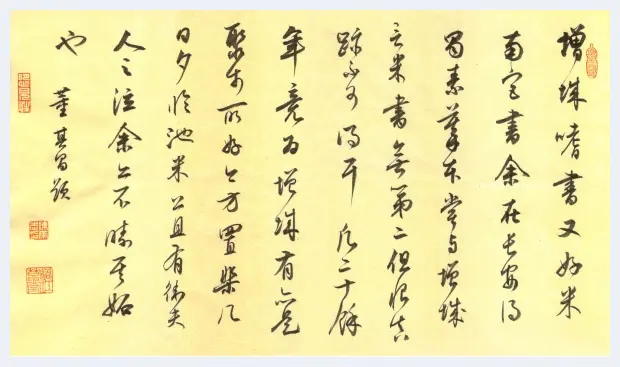 增城嗜書又好米
南宮書余在長安得
蜀素摹本嘗與增城
言米書無第二但恨真
跡不可得耳凡二十餘
年竟為增城有亦是
聚於所好今方置棐几
日夕臨池米公且有衛夫
人之泣余亦不勝其妒
也 董其昌題